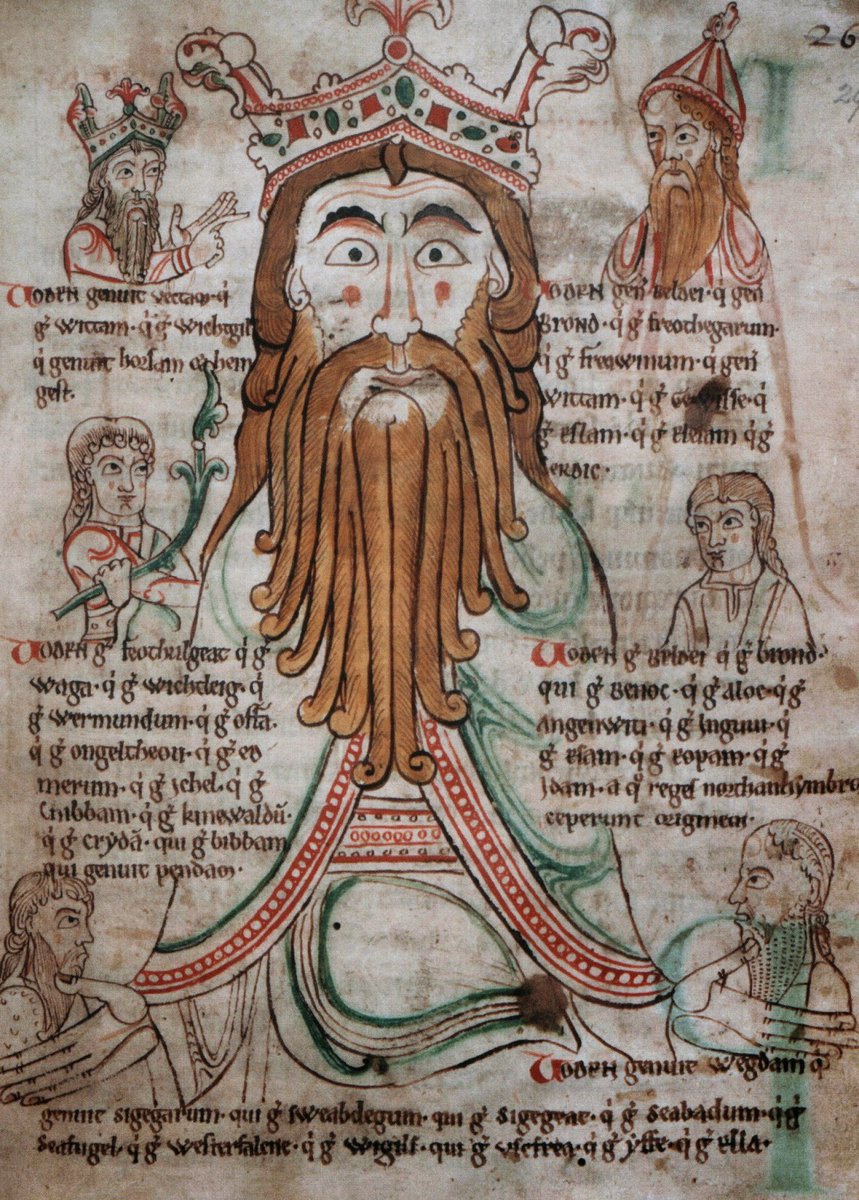 26
Uoden genuit vectam· q̇
ḡ wittam· q̇ ḡ wichtgil
q̇ genuit horsam & hen
gest.
Uoden geñ beldei· q̇ geñ
Brond· q̇ ḡ freothegarum·
q̇ ḡ frewinum· q̇ geñ
wittam· q̇ ḡ Gewisse· q̇
ḡ eslam· q̇ ḡ elesam q̇ ḡ
Cerdic·
Uoden ḡ feothulgeat q̇ ḡ
waga· q̇ ḡ wichtleig· q̇
ḡ wermundum· q̇ ḡ offā.
q̇ ḡ ongeltheou· q̇ ḡ eo
merum· q̇ ḡ ichel· q̇ ḡ
Cnibbam· q̇ ḡ kinewaldū·
q̇ ḡ crydā· qui ḡ bibbam
qui genuit pendam·
Uoden ḡ beldei q̇ ḡ brond·
qui ḡ Benoc· q̇ ḡ aloc· q̇ ḡ
Angenwiti· q̇ ḡ Inguui· q̇
ḡ esam· q̇ ḡ eopam· q̇ ḡ
Idam· a q̊ reges northanhymbro
ceperunt originem·
Uoden genuit wegdam q̇
genuit sigegarum· qui ḡ sweabdegum· qui ḡ sigegeat· q̇ ḡ seabadum· q̇ ḡ
seafugel· q̇ ḡ westerfalene· q̇ ḡ wigils· qui ḡ uscfrea· q̇ ḡ yffe· q̇ ḡ ella·